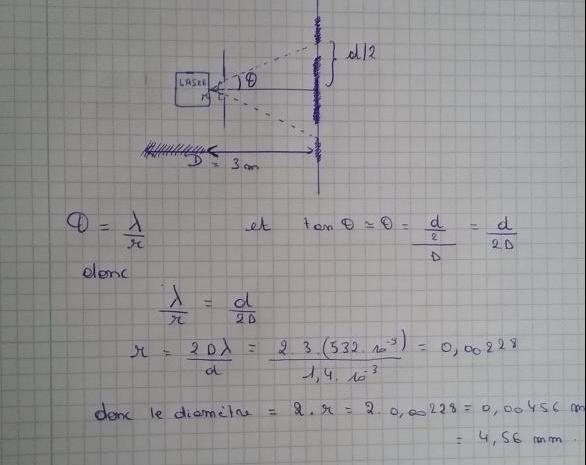 d/2
LASER
θ
r
D = 3 m
θ = λ/r et tan θ ≃ θ = (d/2)/D = d/2D
donc
λ/r = d/2D
r = 2Dλ/d = 2.3.(532.10⁻⁹)/1,4.10⁻³ = 0,00228
donc le diamètre = 2.r = 2.0,00228 = 0,00456 m
= 4,56 mm.